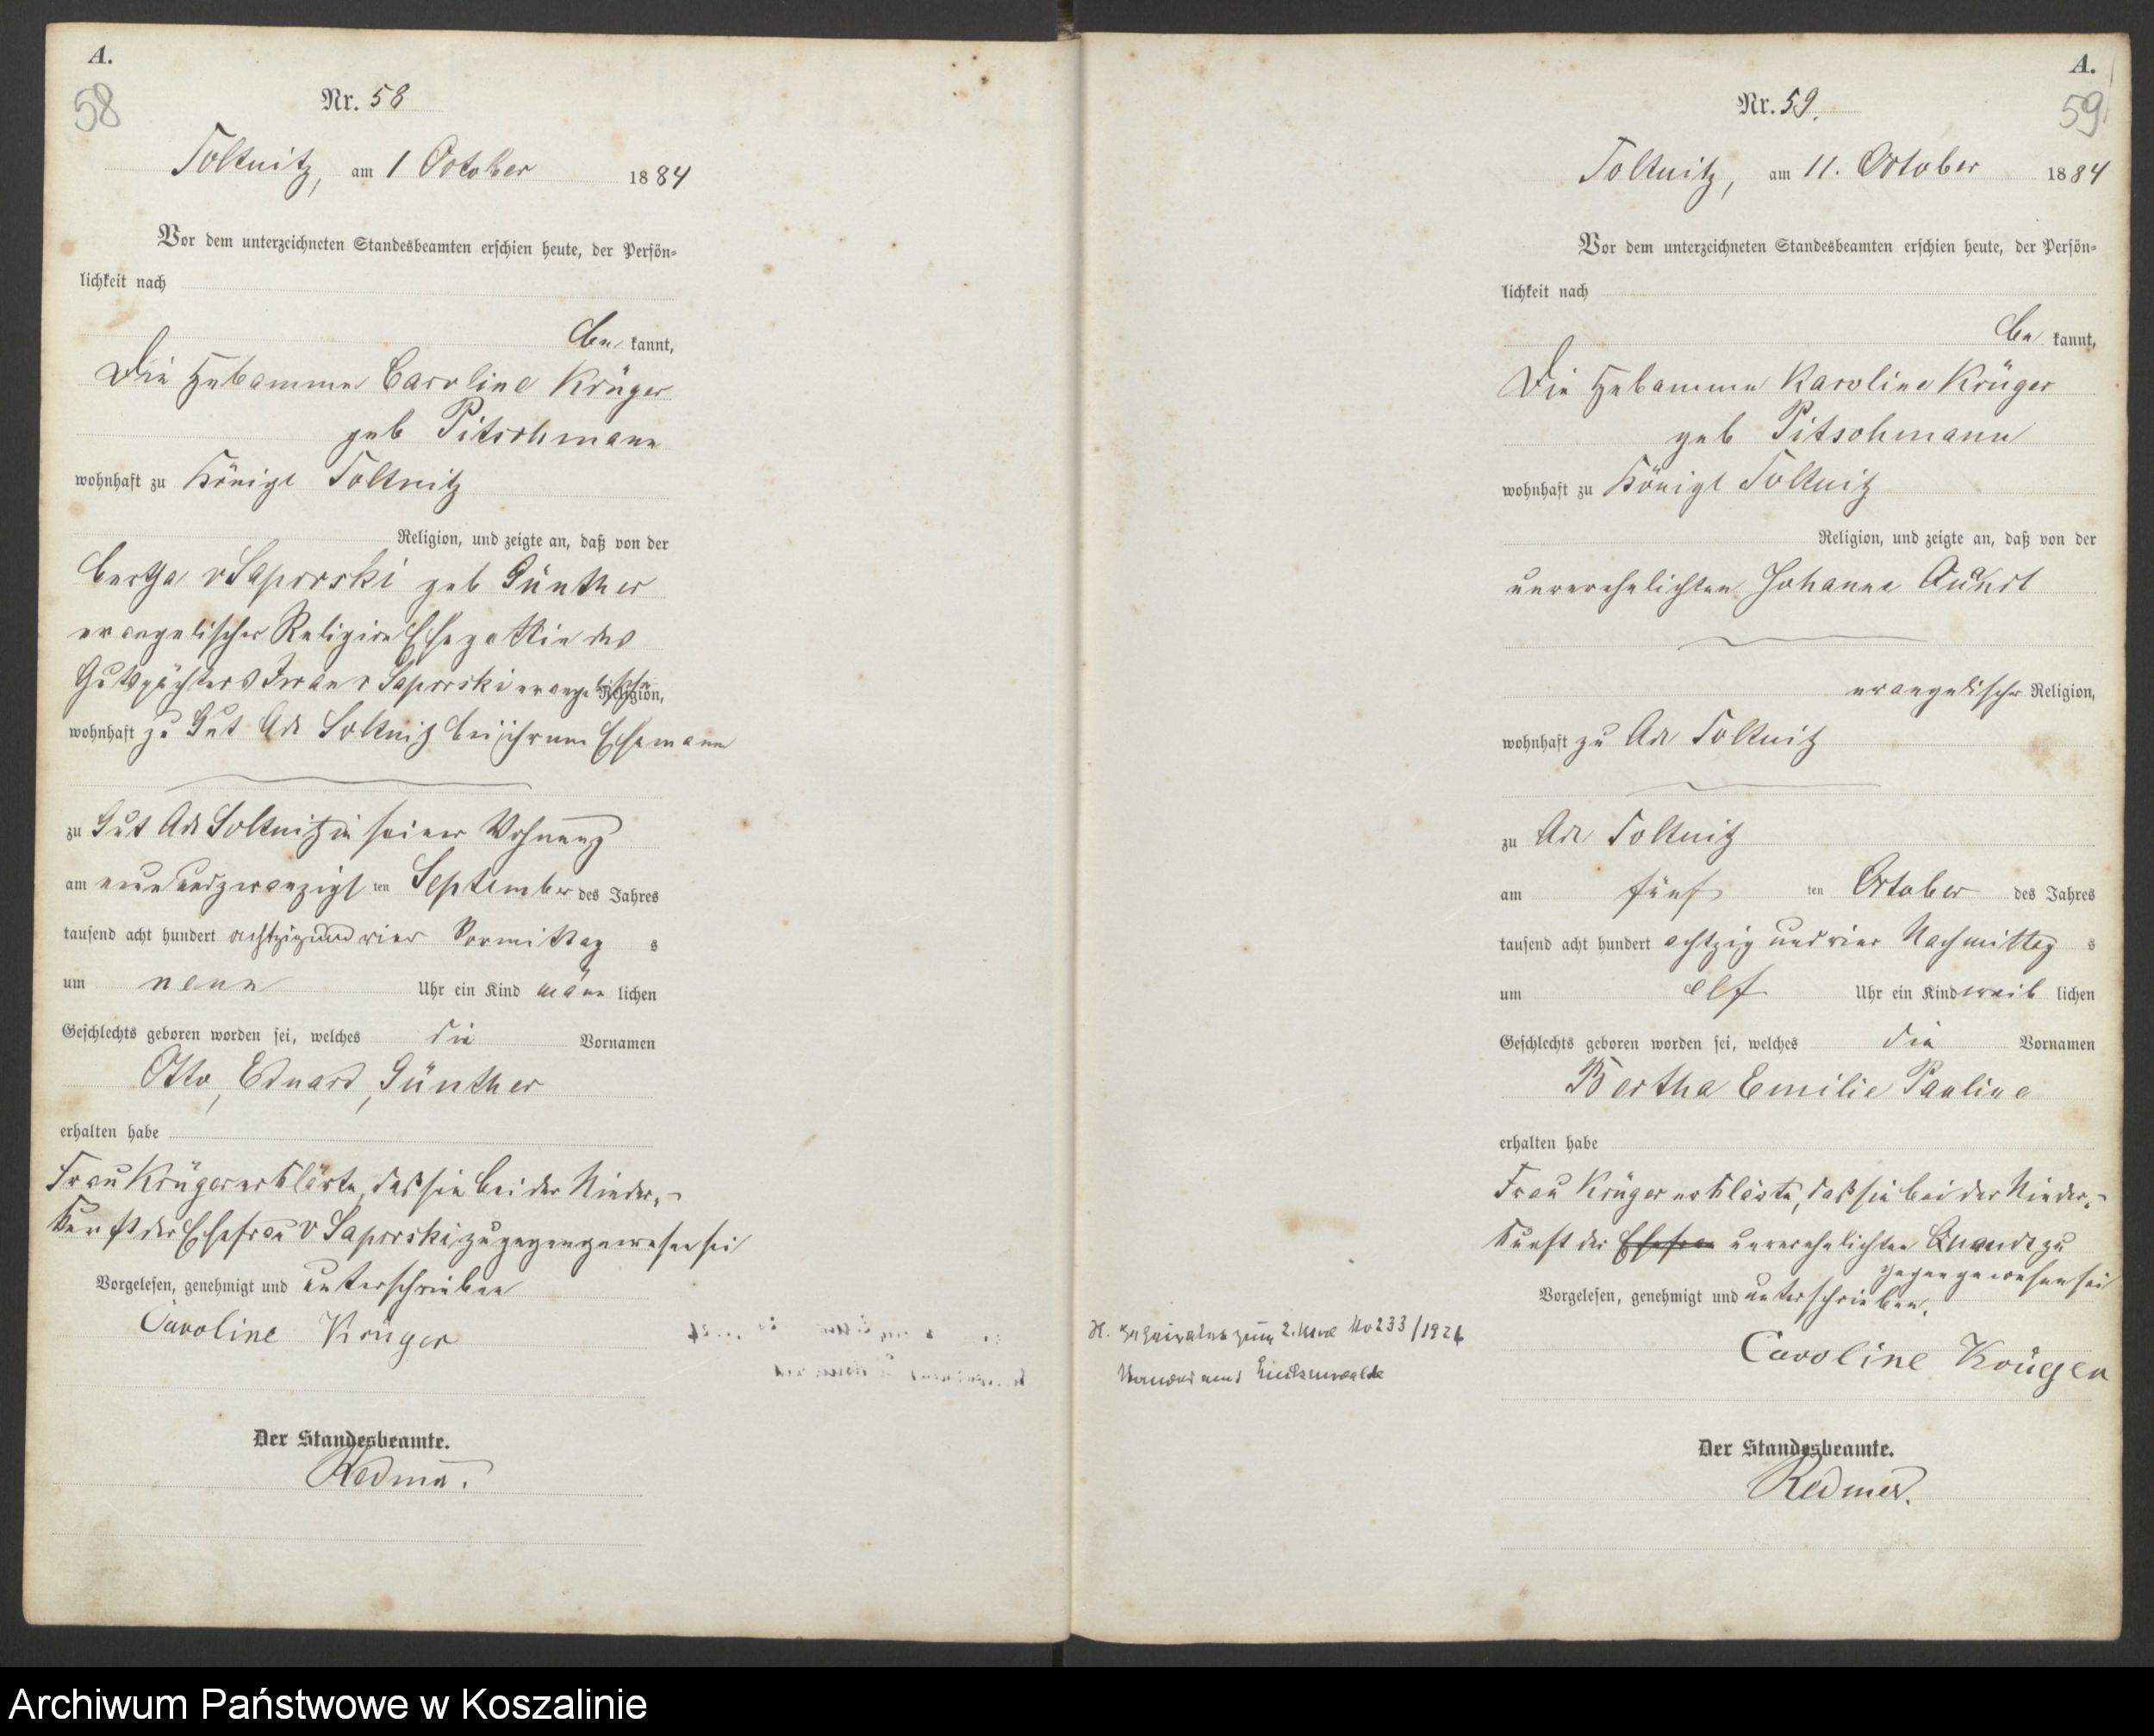 A.
58
Nr. 58
Soltnitz, am 1 October 1884
Vor dem unterzeichneten Standesbeamten erschien heute, der Persön=
lichkeit nach
be kannt,
Die Hebamme Caroline Krüger
geb Pitschmann
wohnhaft zu Königl Soltnitz
Religion, und zeigte an, daß von der
v Saporski geb Günther
evangelischer Religion Ehegattin des
Gutspächters Iwan v Saporski evangelischer Religion,
wohnhaft zu Gut Adl Soltnitz bei ihrem Ehemann
zu Gut Adl Soltnitz in seiner Wohnung
am neunundzwanzigs ten September des Jahres
tausend acht hundert achtzig und vier Vormittag s
um neun Uhr ein Kind männ lichen
Geschlechts geboren worden sei, welches die Vornamen
Otto, Eduard, Günther
erhalten habe
Frau Krüger erklärte, daß sie bei der Nieder=
kunft der Ehefrau v Saporski zugegen gewesen sei
Vorgelesen, genehmigt und unterschrieben
Caroline Krüger
Der Standesbeamte.
Redmer.
A.
59
Nr. 59.
Soltnitz, am 11. October 1884
Vor dem unterzeichneten Standesbeamten erschien heute, der Persön=
lichkeit nach
be kannt,
Die Hebamme Karoline Krüger
geb Pitschmann
wohnhaft zu Königl Soltnitz
Religion, und zeigte an, daß von der
unverehelichten Johanne Quandt
evangelischer Religion,
wohnhaft zu Adl Soltnitz
zu Adl Soltnitz
am fünf ten October des Jahres
tausend acht hundert achtzig und vier Nachmittag s
um elf Uhr ein Kind weib lichen
Geschlechts geboren worden sei, welches die Vornamen
Bertha Emilie Pauline
erhalten habe
Frau Krüger erklärte, daß sie bei der Nieder=
kunft der Ehefrau unverehelichten Quandt zu
gegen gewesen sei
Vorgelesen, genehmigt und unterschrieben.
Caroline Krüger
H. No 233/1921
Der Standesbeamte.
Redmer.
Archiwum Państwowe w Koszalinie